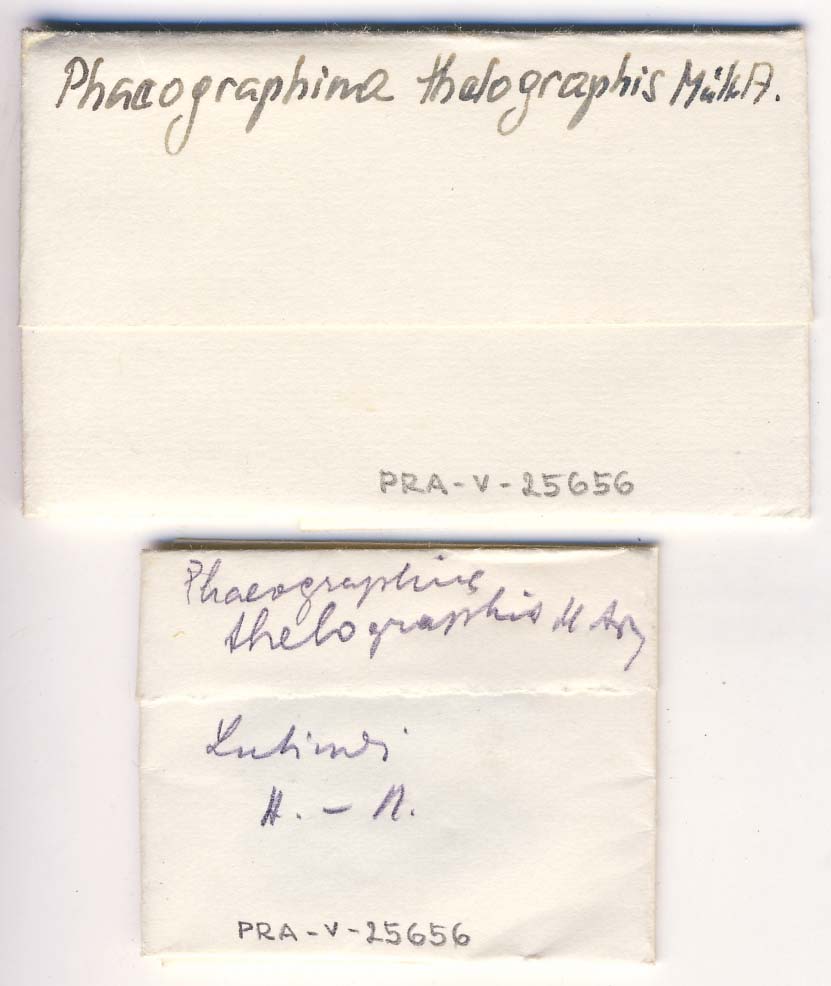 Phaeographina thelographis Müll A.
PRA-V-25656
Phaeographina
thelographis M Arg
H. - A.
PRA-V-25656